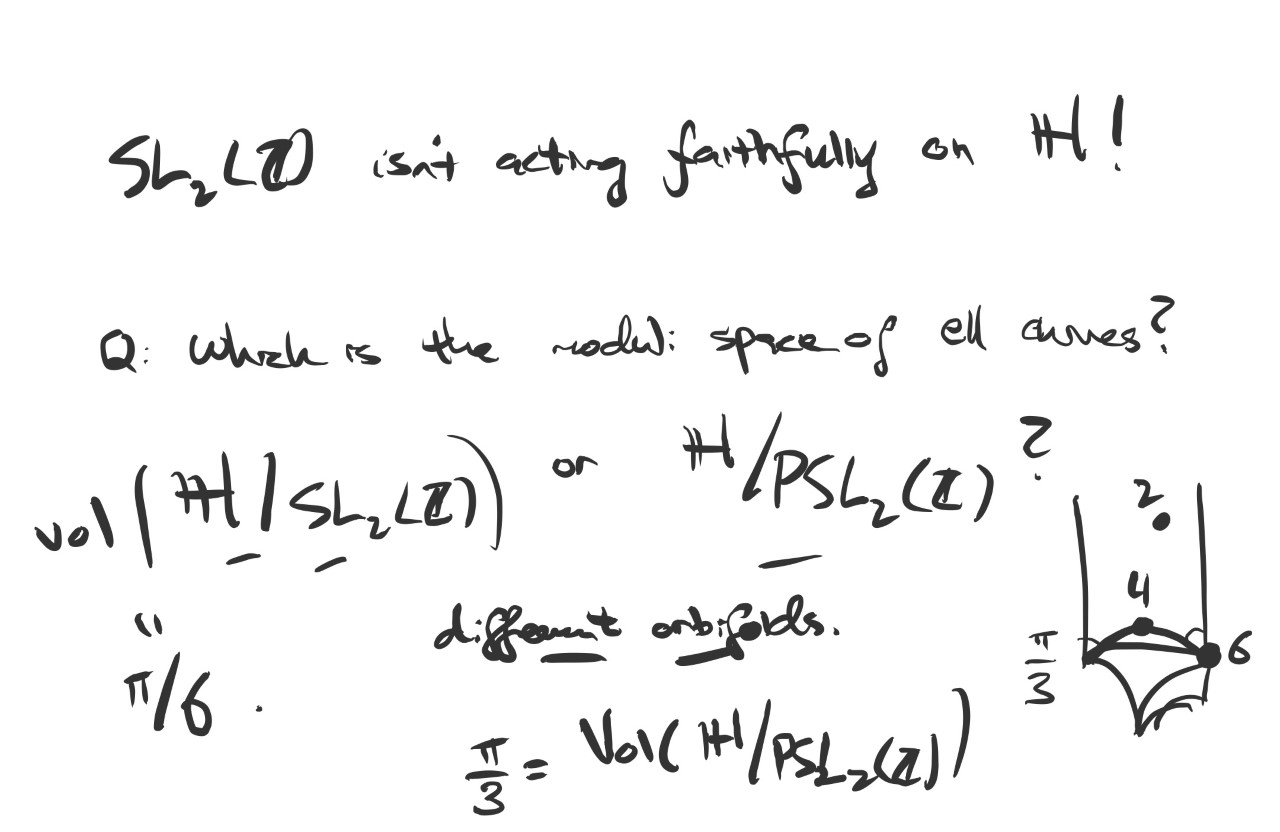 SL₂(ℤ) isn't acting faithfully on ℍ!
Q: Which is the moduli space of ell curves?
vol(ℍ/SL₂(ℤ)) or ℍ/PSL₂(ℤ) ?
"
π/6 .
different orbifolds.
π/3 = Vol(ℍ/PSL₂(ℤ))
2
4
π/3
6